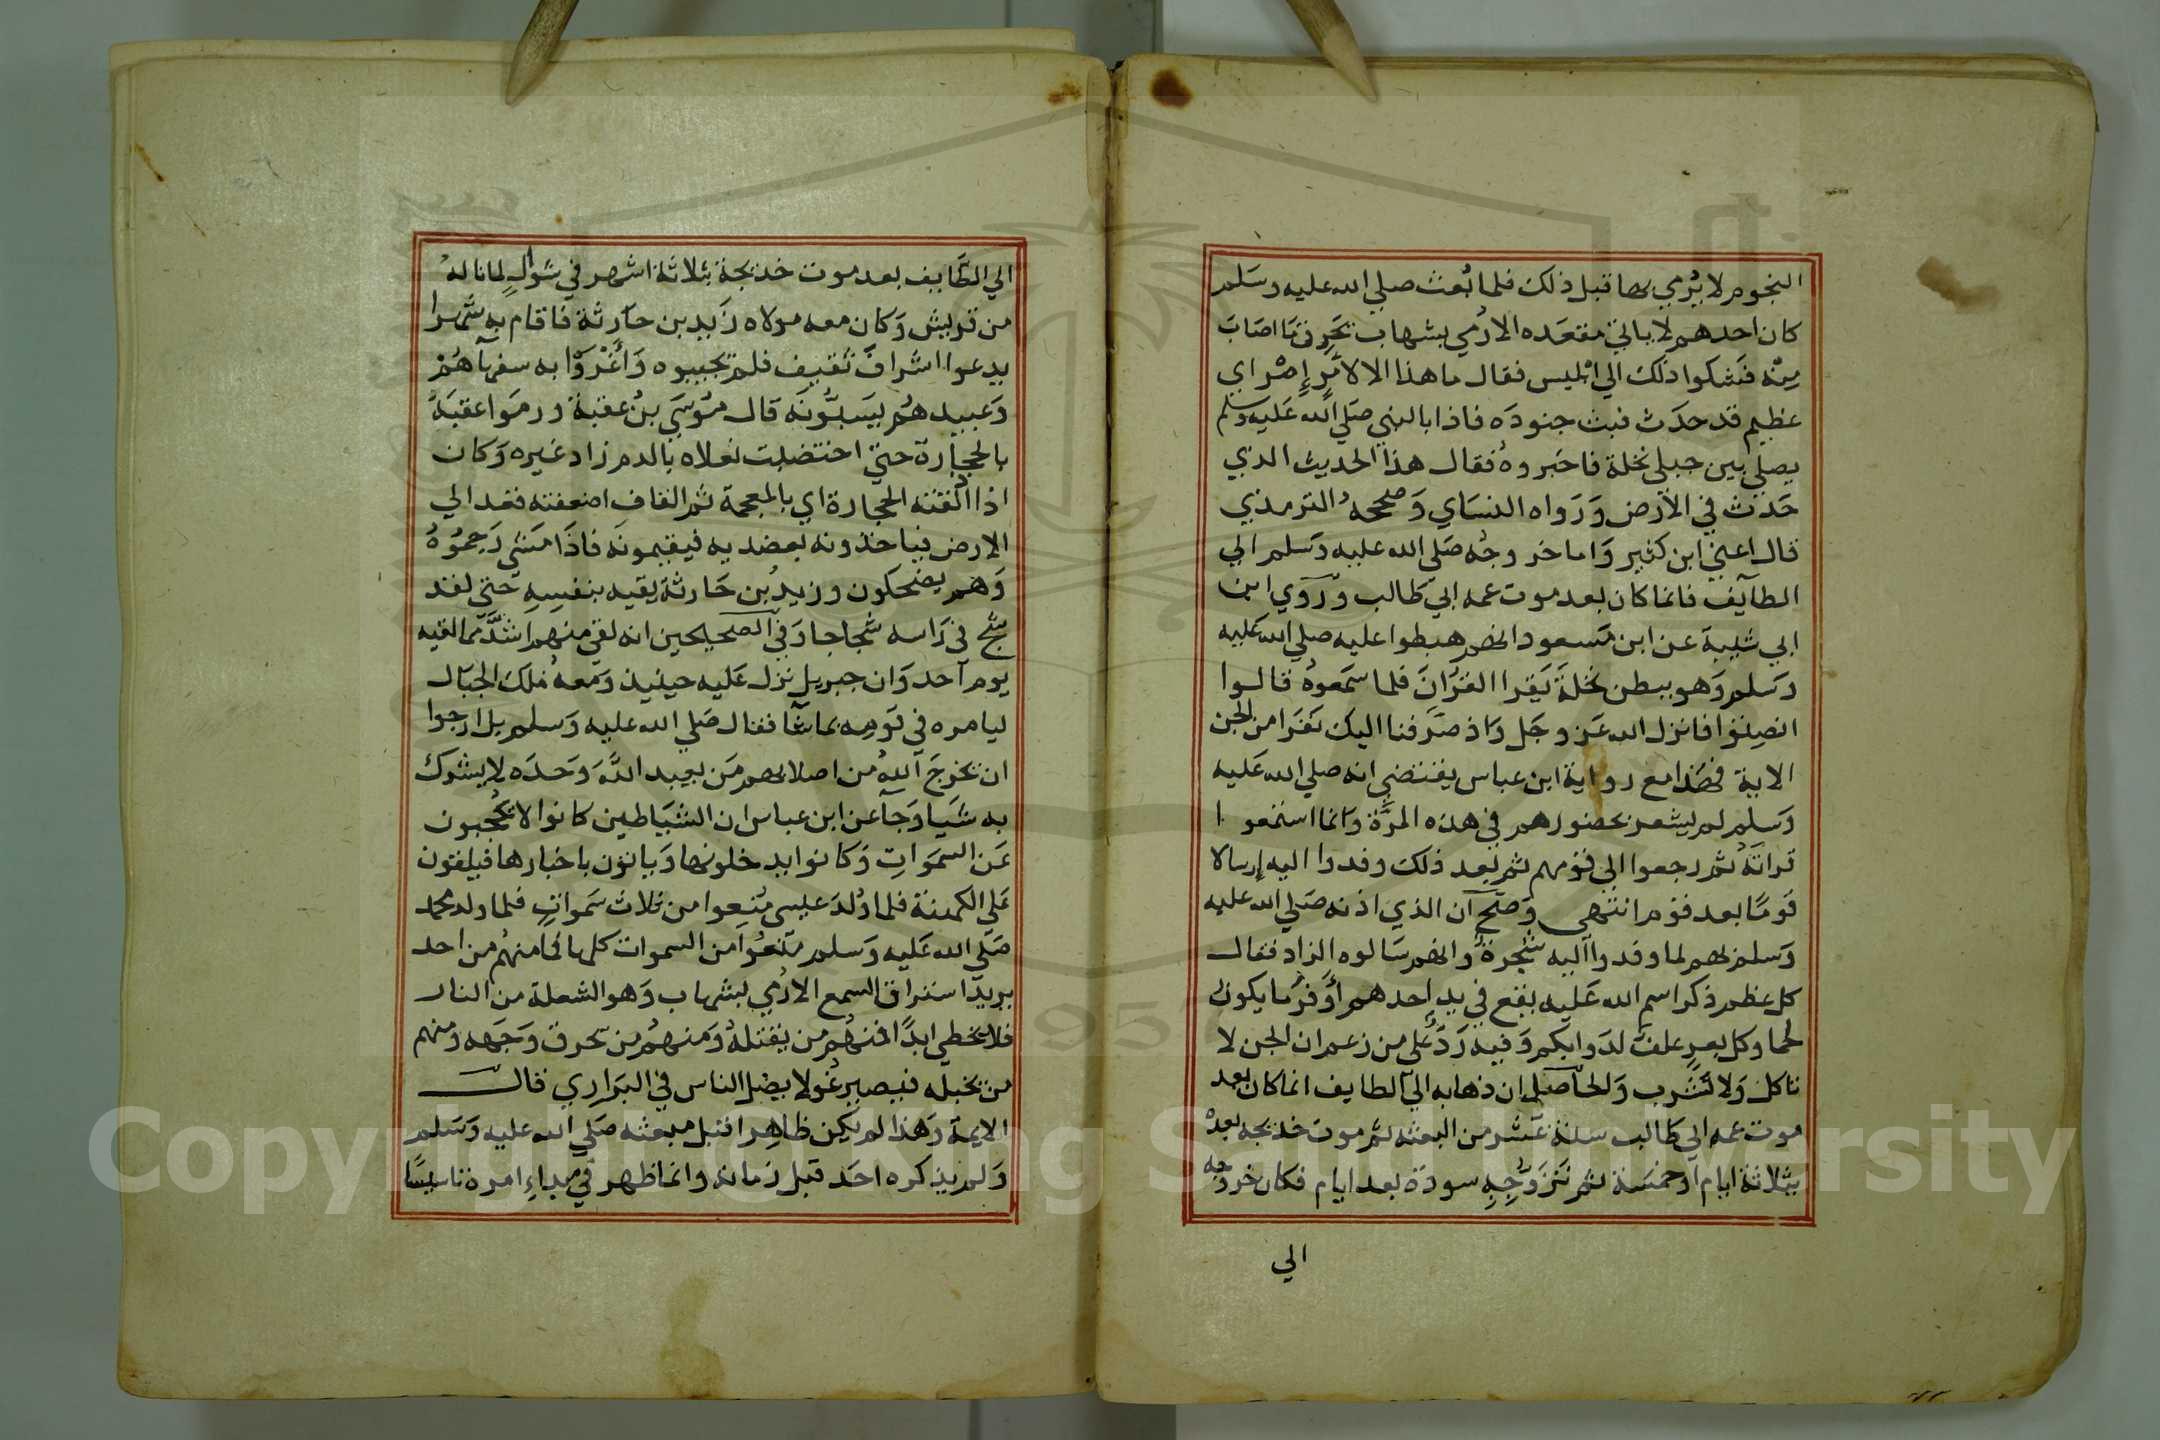 النجوم لا يرمي بها قبل ذلك فلما بُعث صلي الله عليه وسَلم
كان احدهم لا ياتي مقعَده الا رُمي بشهاب تحرق ما اصَابَ
مِنْه فشكوا ذلك الي ابليس فقال ما هذا الا لامرٍ إمْرٍ اي
عظيم قد حدَث فبث جنودَه فاذا بالنبي صَلي الله عَليه وسَلم
يصلي بين جبلي نخلة فاخبروهُ فقال هذا الحديث الذي
حَدَث في الارض وَرَواه النسَاي وَصححهُ الترمذي
قال اعني ابن كثير وَاما خروجُه صَلي الله عليه وَسلم الي
الطآيف فانما كان بعد موت عمه ابي طالب ورَوي ابن
ابي شيبة عن ابن مَسعود انهم هبطوا عليه صلي الله عَليه
وَسَلم وَهو ببطن نخلَة يَقرا القرَانَ فلما سَمَعوهُ قالوا
انصِتوا فانزل الله عَز وجَل وَاذ صَرَفنا اليك نَفَرَا من الجن
الاية فهَذا مع رواية ابن عباس يقتضي انه صلي الله عَليه
وَسَلم لم يشعر بحضورهم في هذه المرَّة وَانما استمعوا
قراتَهُ ثم رجعوا الي قومهم ثم بَعد ذلك وفدوا اليه إرسالا
قومًا بعد قوم انتهي وَصَحّ ان الذي اذنه صَلي الله عليه
وَسَلم بهم لما وفدوا اليه شجرةٌ وانهم سَالوه الزاد فقال
كل عظم ذكر اسم الله عَليه يقع في يد إحدهم أوْفرُ ما يكون
لحما وكل بعرٍ علفٌ لدَوابكم وَفيه رَدَّ عَلي من زعم ان الجن لا
تاكل وَلا تشرب وَالحآصل ان ذهابه الي الطايف انما كان بعد
موت عمه ابي طالب سنة عَشر من البعثه ثم موت خديجه بعدهُ
بثلاثة ايام او خمسَة ثم تَزَوُّجِهِ سودَة بعد ايام فكان خروجه
الي
الي الطَّايف بعد موت خديجة بثلاثة اشهر في شوالٍ لما ناله
من قريش وَكان معه مولاه زَيد بن حَارثة فاقام به شهرا
يدعوا اشرافَ ثقيف فلم يجيبوه وَأَغْرَوْا به سفهآهُمْ
وَعبيدهُم يسَبُّونَه قال مُوسَي بنُ عقبة ورمَوا عقبَهُ
بالحجارَة حتي اختضبت نعلاه بالدم زاد غيره وَكان
اذا اذلقته الحجارة اي بالمعجمة ثم القاف اضعفته قعد الي
الارض فياخذونه بعضديه فيقيمونَه فاذَا مَشي رَجمُوهُ
وَهم يضحكون وزيدُ بن حَارثة يقيه بنفسِهِ حَتي لقد
شج في رَاسه شجاجا وَفي الصحيحين انه لقي منهم اشدَّ مما لقيه
يوم احد وَان جبريل نزل عَليه حينيذ وَمعهُ مَلك الجبَال
ليامره في قوَمِه بما شا فقال صَلي الله عليه وَسلم بل ارجوا
ان يخرجَ اللهُ من اصلابهم مَن يعبد اللَّهَ وَحدَه لا يشرك
به شيَا وَجآ عن ابن عباس ان الشيَاطين كانوا لا يُحجبون
عَن السموَاتِ وَكانوا يدخلونها وَياتون باخبارها فيلقون
عَلي الكهنة فلما وُلدَ عيسي مُنِعوا من ثلاث سَموات فلما ولد محمد
صَلي الله عَليه وَسلم مُنعُوا من السموات كلها فما منهُم من احد
يريد استراق السمع الا رُمي بشهاب وَهو الشعلة من النار
فلا يخطي ابدًا فمنهُم من يقتلهُ وَمنهُم من تحرق وَجَهه ومنهم
من يخبله فيصير غُولا يضل الناس في البَرَاري قالَ
الايمة وَهذا لم يكن ظاهِرا قبل مبعثه صَلي الله عليه وَسَلم
وَلم يذكره احَد قبل زمانه وانما ظهر في مبداءِ امره تاسيسًا
Copyright © King Saud University